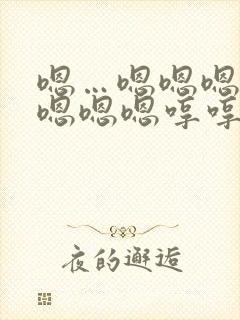 嗯…嗯嗯嗯
嗯嗯嗯哼哼
夜的邂逅